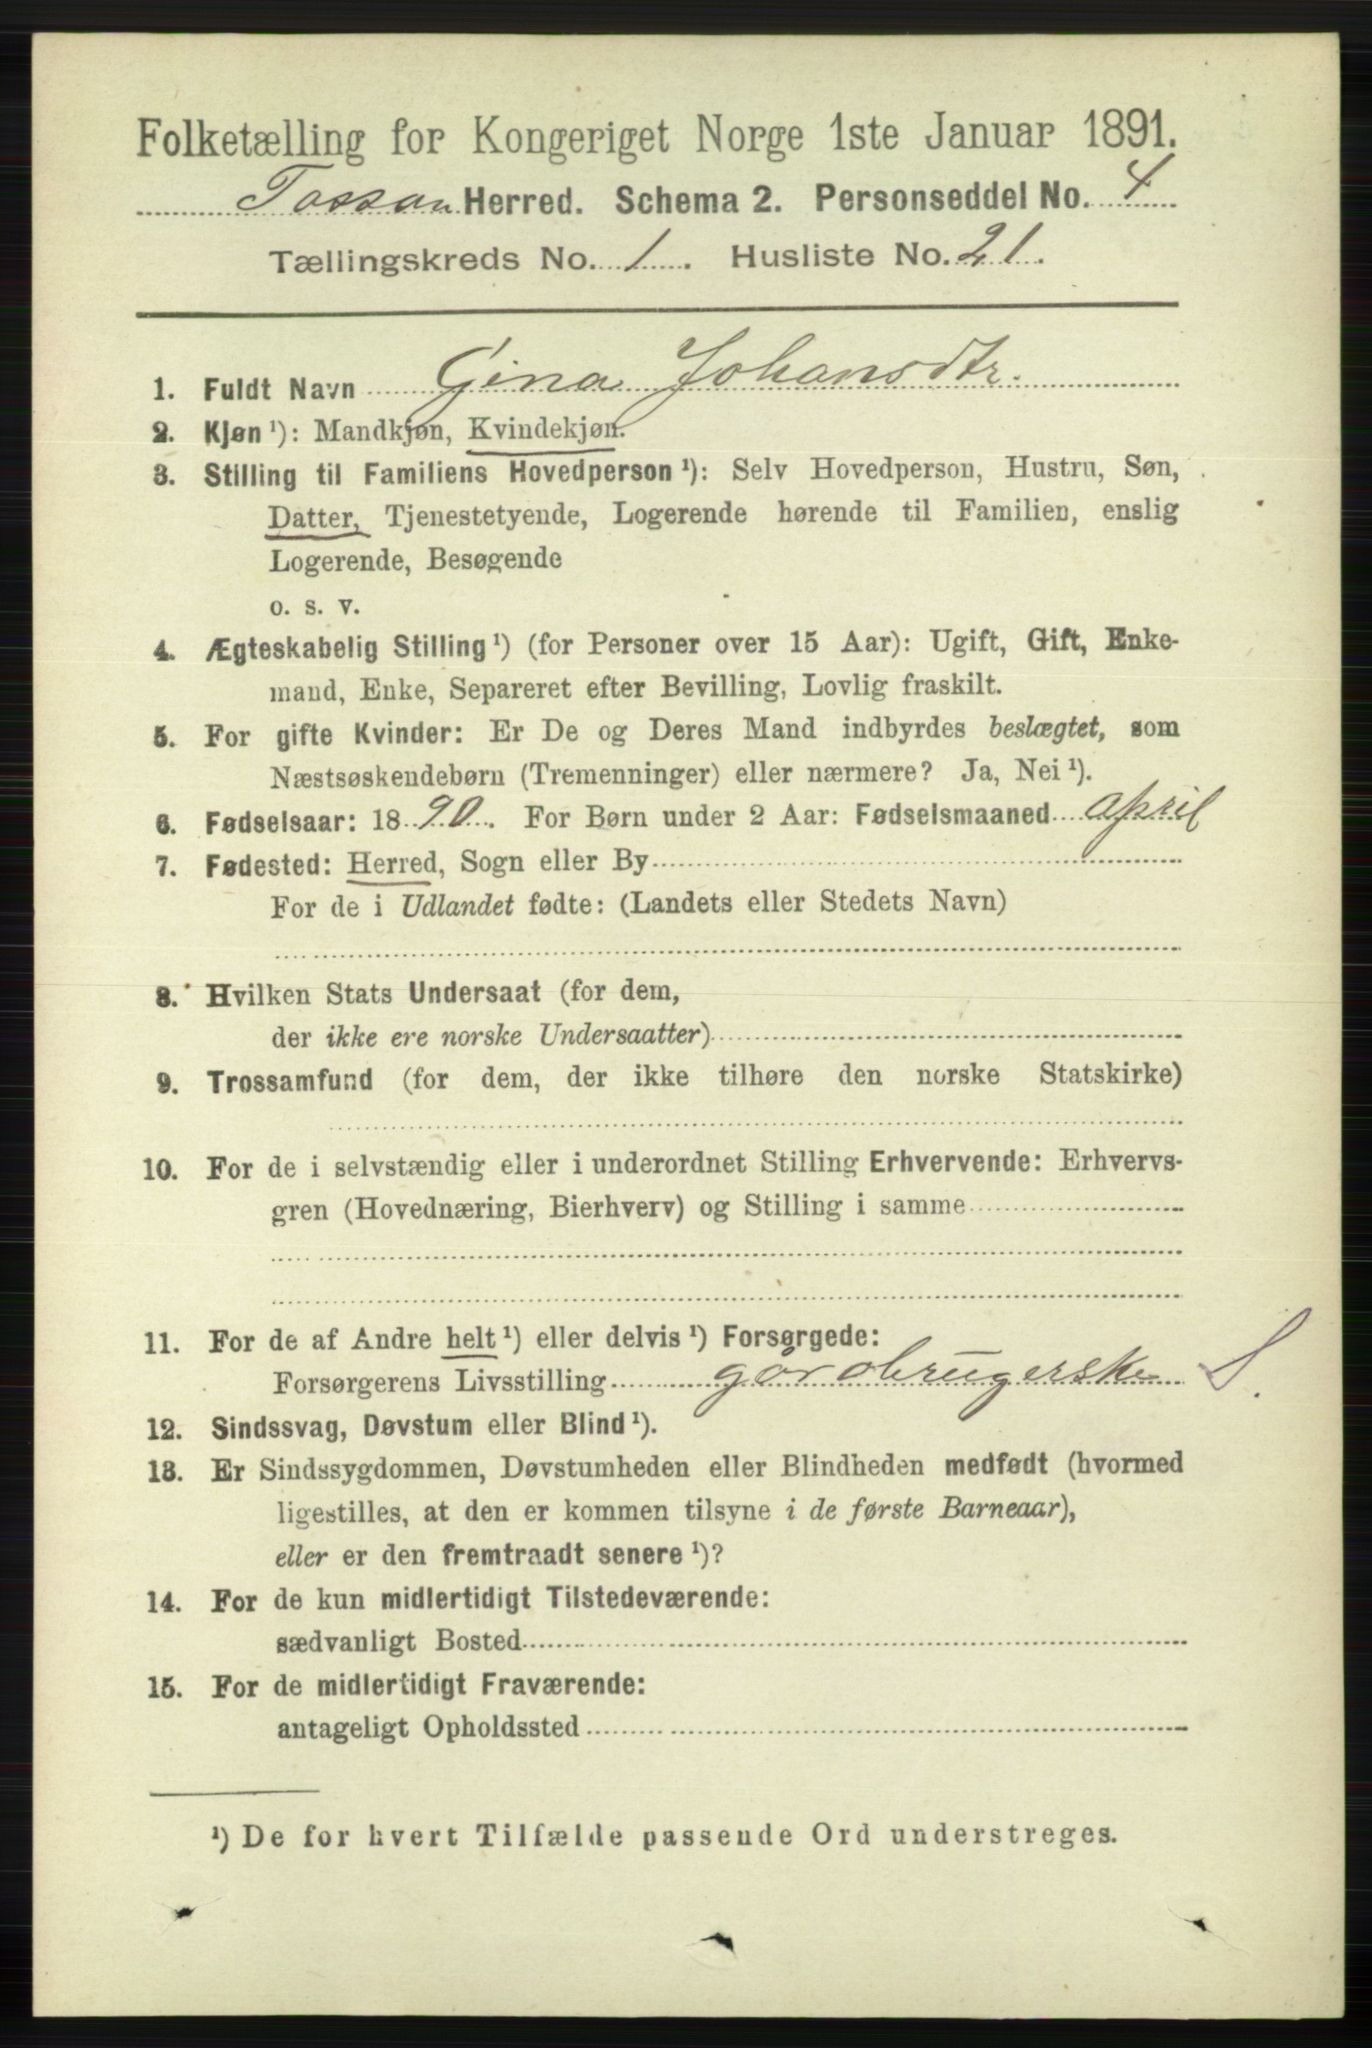 Folketælling for Kongeriget Norge 1ste Januar 1891.
Tossau Herred. Schema 2. Personseddel No. 4
Tællingskreds No. 1. Husliste No. 21.
1. Fuldt Navn Gina Johansdtr.
2. Kjøn ¹): Mandkjøn, Kvindekjøn.
3. Stilling til Familiens Hovedperson ¹): Selv Hovedperson, Hustru, Søn,
Datter, Tjenestetyende, Logerende hørende til Familien, enslig
Logerende, Besøgende
o. s. v.
4. Ægteskabelig Stilling ¹) (for Personer over 15 Aar): Ugift, Gift, Enke-
mand, Enke, Separeret efter Bevilling, Lovlig fraskilt.
5. For gifte Kvinder: Er De og Deres Mand indbyrdes beslægtet, som
Næstsøskendebørn (Tremenninger) eller nærmere? Ja, Nei ¹).
6. Fødselsaar: 1890. For Børn under 2 Aar: Fødselsmaaned april
7. Fødested: Herred, Sogn eller By
For de i Udlandet fødte: (Landets eller Stedets Navn)
8. Hvilken Stats Undersaat (for dem,
der ikke ere norske Undersaatter)
9. Trossamfund (for dem, der ikke tilhøre den norske Statskirke)
10. For de i selvstændig eller i underordnet Stilling Erhvervende: Erhvervs-
gren (Hovednæring, Bierhverv) og Stilling i samme
11. For de af Andre helt ¹) eller delvis ¹) Forsørgede:
Forsørgerens Livsstilling gårdbrugerske S.
12. Sindssvag, Døvstum eller Blind ¹).
13. Er Sindssygdommen, Døvstumheden eller Blindheden medfødt (hvormed
ligestilles, at den er kommen tilsyne i de første Barneaar),
eller er den fremtraadt senere ¹)?
14. For de kun midlertidigt Tilstedeværende:
sædvanligt Bosted
15. For de midlertidigt Fraværende:
antageligt Opholdssted
¹) De for hvert Tilfælde passende Ord understreges.